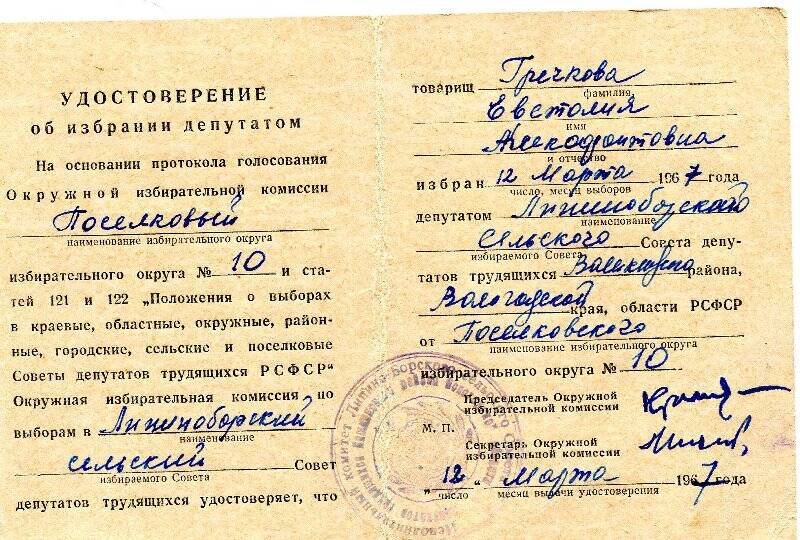 УДОСТОВЕРЕНИЕ
об избрании депутатом
На основании протокола голосования
Окружной избирательной комиссии
Поселковый
наименование избирательного округа
избирательного округа № 10 и ста-
тей 121 и 122 „Положения о выборах
в краевые, областные, окружные, район-
ные, городские, сельские и поселковые
Советы депутатов трудящихся РСФСР“
Окружная избирательная комиссия по
выборам в Липиноборский
наименование
сельский Совет
избираемого Совета
депутатов трудящихся удостоверяет, что
товарищ Гречкова
фамилия,
Евстолия
имя
и отчество
избран 12 Марта 1967 года
число, месяц выборов
депутатом Липиноборского
наименование
Сельского Совета депу-
избираемого Совета
татов трудящихся района,
Вологодской края, области РСФСР
от Поселковского
наименование избирательного округа
избирательного округа № 10
Председатель Окружной
избирательной комиссии
М. П.
Секретарь Окружной
избирательной комиссии
„12“ Марта 1967 года
число месяц выдачи удостоверения